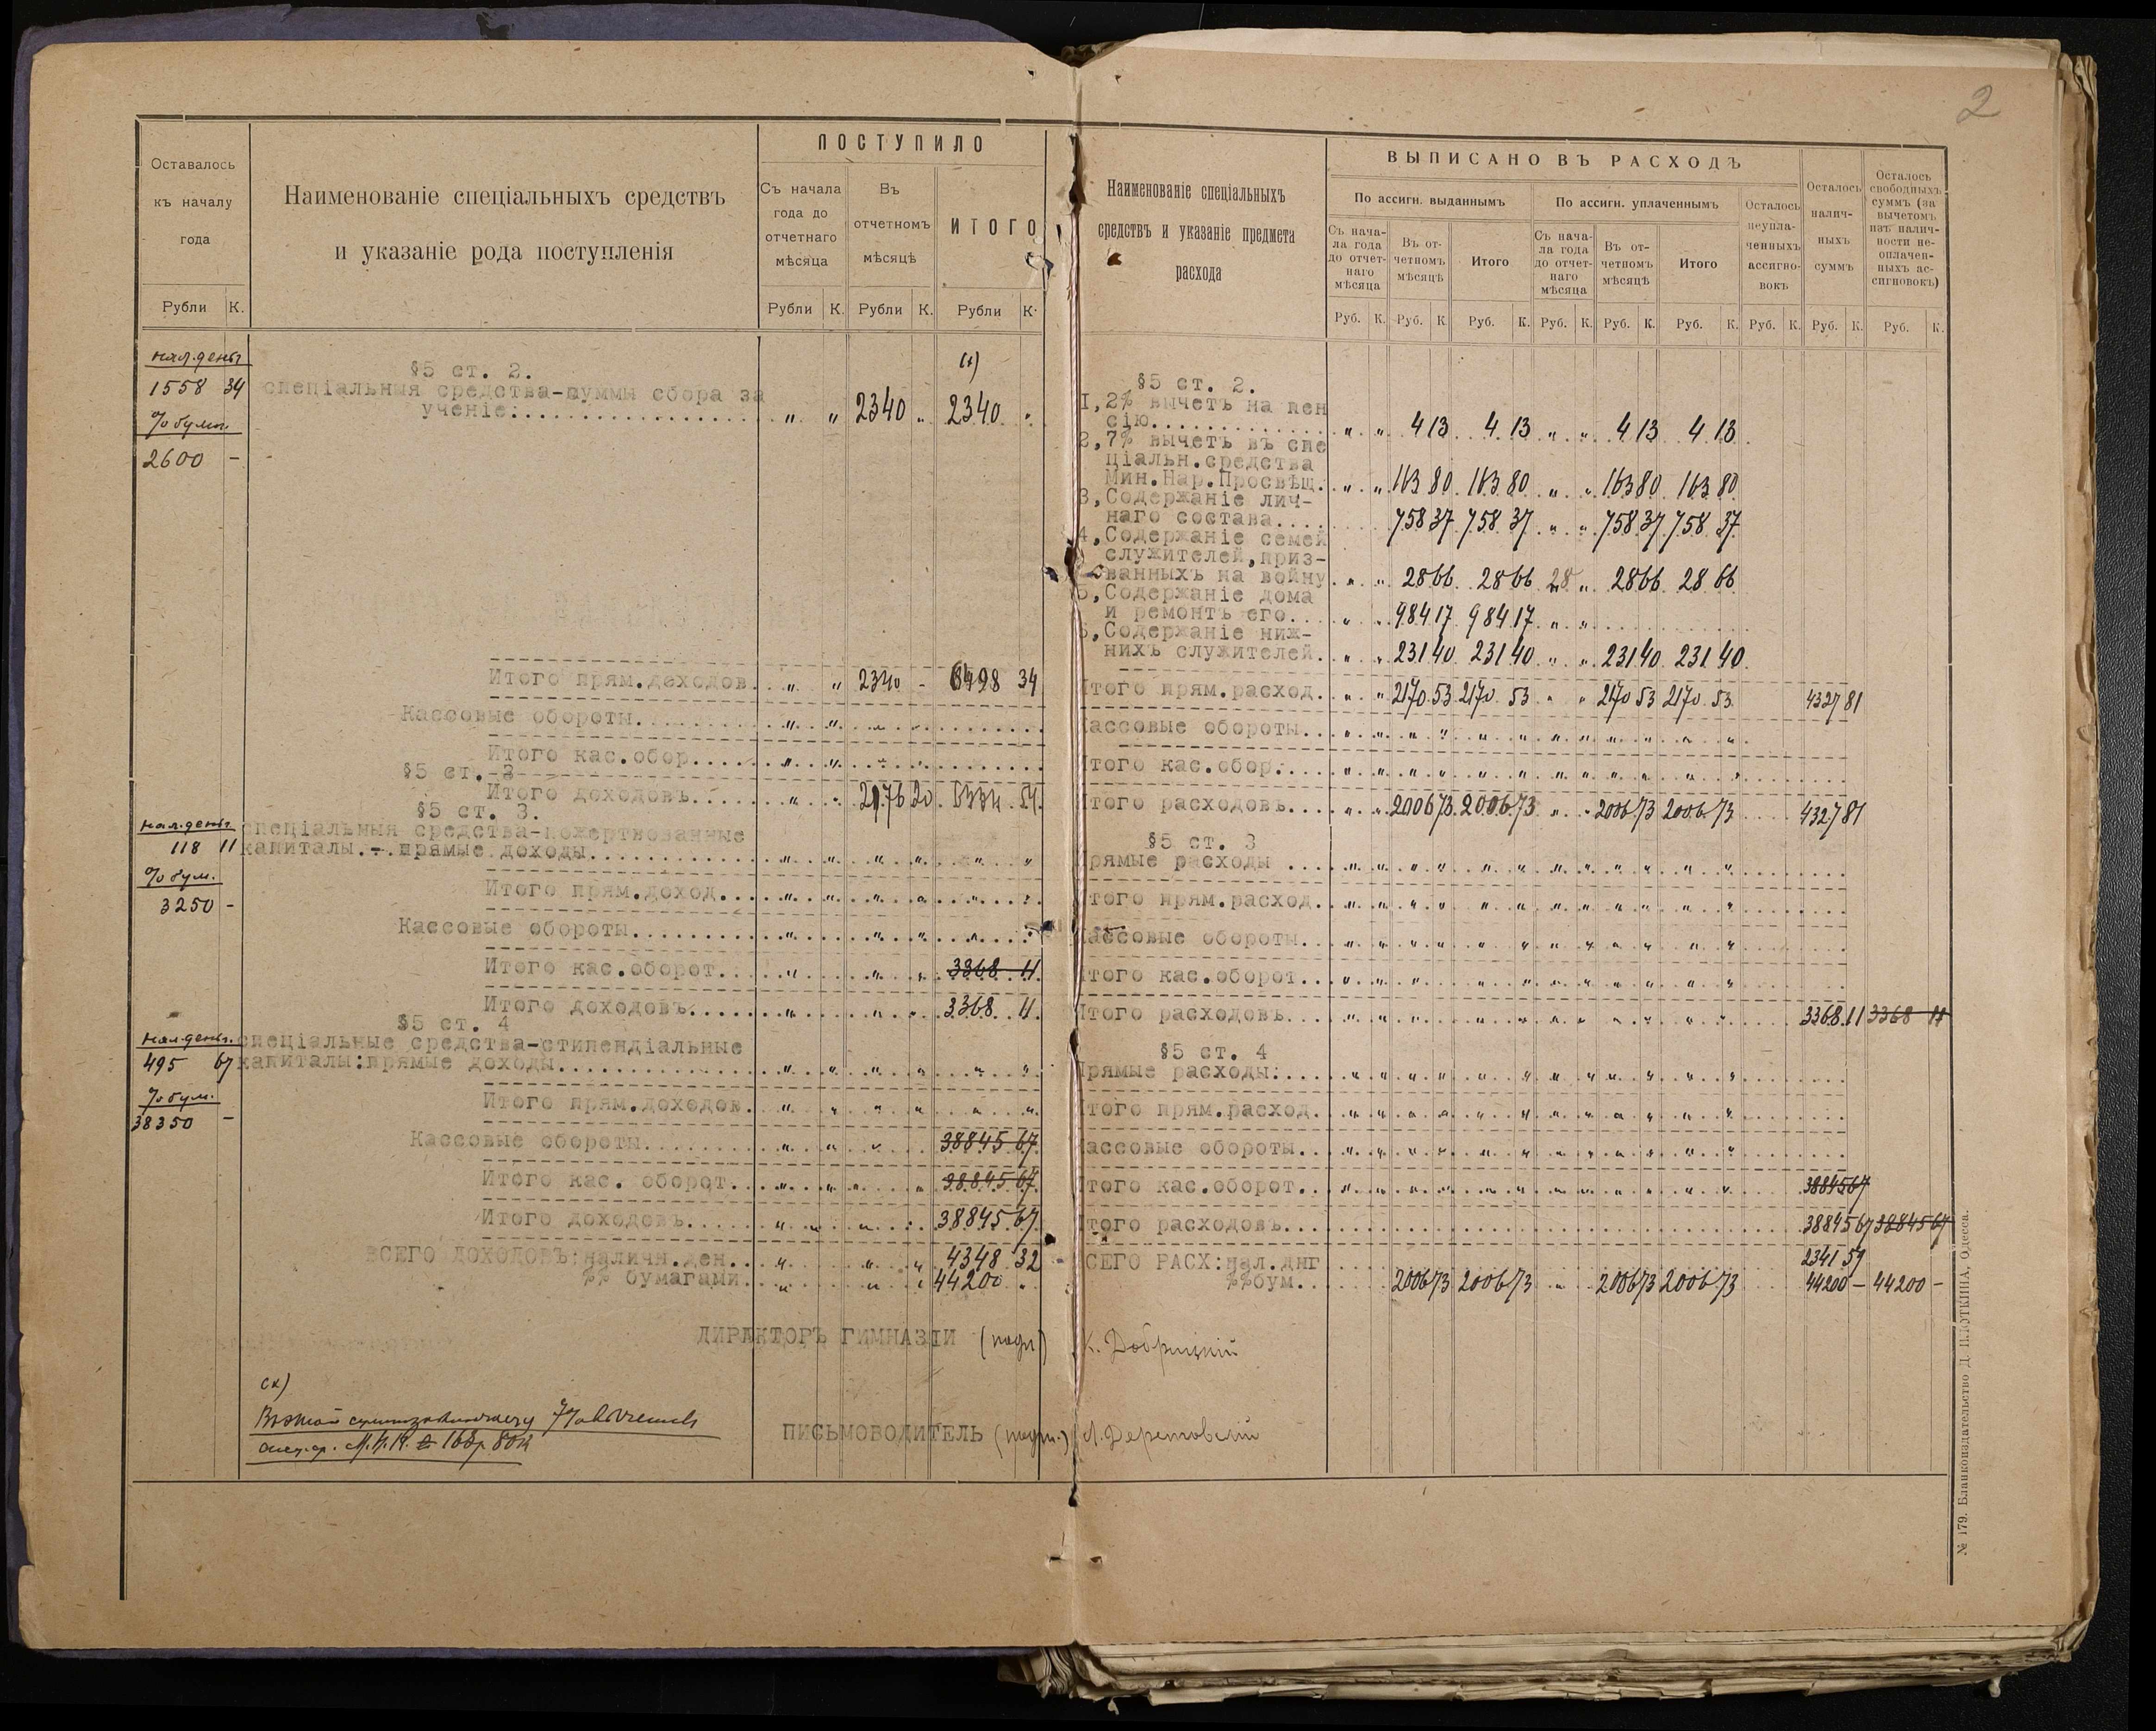 2
Оставалось
къ началу
года
Рубли К.
Наименованіе спеціальныхъ средствъ
и указаніе рода поступленія
ПОСТУПИЛО
Съ начала
года до
отчетнаго
мѣсяца
Рубли К.
Въ
отчетномъ
мѣсяцѣ
Рубли К.
ИТОГО
Рубли К.
нал.деньг
1558 34
% бумаг
2600 -
§5 ст. 2.
спеціальныя средства-суммы сбора за
ученіе:.................. „ „ 2340 „ 2340 „
Итого прям.доходов. „ „ 2340 - 6498 34
Кассовые обороты.......... „ „
Итого кас.обор.... „ „
§5 ст.-3
Итого доходовъ...... „ „
§5 ст. 3.
нал.деньг
118 11
% бум.
3250 -
спеціальныя средства-пожертвованные
капиталы.-.прямые доходы........... „ „ „ „ „ „
Итого прям.доход... „ „ „ „
Кассовые обороты.......... „ „ „
Итого кас.оборот... „ „ „ 3368 11
Итого доходовъ..... „ „ „ 3368 11
§5 ст. 4
нал.деньг.
495 67
% бум.
38350 -
спеціальные средства-стипендіальные
капиталы:прямые доходы............. „ „ „ „ „ „
Итого прям.доходов. „ „ „ „ „ „
Кассовые обороты......... „ „ „ 38845 67
Итого кас. оборот.. „ „ „ „ 38845 67
Итого доходовъ..... „ „ „ 38845 67
ВСЕГО ДОХОДОВЪ:наличн.ден.. „ „ „ 4348 32
%% бумагами. „ „ „ 44200 „
ДИРЕКТОРЪ ГИМНАЗІИ (подп) К. Добрицкій
ПИСЬМОВОДИТЕЛЬ (подп.)
Наименованіе спеціальныхъ
средствъ и указаніе предмета
расхода
ВЫПИСАНО ВЪ РАСХОДЪ
По ассигн. выданнымъ
Съ нача-
ла года
до отчет-
наго
мѣсяца
Руб. К.
Въ от-
четномъ
мѣсяцѣ
Руб. К.
Итого
Руб. К.
По ассигн. уплаченнымъ
Съ нача-
ла года
до отчет-
наго
мѣсяца
Руб. К.
Въ от-
четномъ
мѣсяцѣ
Руб. К.
Итого
Руб. К.
Осталось
неупла-
ченныхъ
ассигно-
вокъ
Руб. К.
Осталось
налич-
ныхъ
суммъ
Руб. К.
Осталось
свободныхъ
суммъ (за
вычетомъ
изъ налич-
ности не-
оплачен-
ныхъ ас-
сигновокъ)
Руб. К.
§5 ст. 2.
1,2% вычетъ на пен
сію.............. „ „ 4 13 4 13 „ „ 4 13 4 13
2,7% вычетъ въ спе
ціальн.средства
Мин.Нар.Просвѣщ. „ „ 163 80 163 80 „ „ 163 80 163 80
3,Содержаніе лич-
наго состава.... 758 37 758 37 „ „ 758 37 758 37
4,Содержаніе семей
служителей,приз-
ванныхъ на войну „ „ 28 66 28 66 28 „ 28 66 28 66
5,Содержаніе дома
и ремонтъ его... „ „ 984 17 984 17 „ „
6,Содержаніе ниж-
нихъ служителей. „ „ 231 40 231 40 „ „ 231 40 231 40
Итого прям.расход. „ „ 2170 53 2170 53 „ „ 2170 53 2170 53 4327 81
Кассовые обороты.. „ „ „ „ „ „ „ „ „ „ „ „
Итого кас.обор:... „ „ „ „ „ „ „ „ „ „ „ „
Итого расходовъ... „ „ 2006 73 2006 73 „ „ 2006 73 2006 73 4327 81
§5 ст. 3
Прямые расходы ... „ „ „ „ „ „ „ „ „ „ „ „
Итого прям.расход. „ „ „ „ „ „ „ „ „ „ „ „
Кассовые обороты.. „ „ „ „ „ „ „ „ „ „ „ „
Итого кас.оборот.. „ „ „ „ „ „ „ „ „ „ „ „
Итого расходовъ... „ „ „ „ „ „ „ „ „ „ „ „ 3368 11 3368 11
§5 ст. 4
Прямые расходы:... „ „ „ „ „ „ „ „ „ „ „ „
Итого прям.расход. „ „ „ „ „ „ „ „ „ „ „ „
Кассовые обороты.. „ „ „ „ „ „ „ „ „ „ „ „
Итого кас.оборот.. „ „ „ „ „ „ „ „ „ „ „ „ 38845 67
Итого расходовъ... 38845 67 38845 67
ВСЕГО РАСХ:нал.днг 2341 59
%%бум.. 2006 73 2006 73 „ 2006 73 2006 73 44200 - 44200 -
№ 179. Бланкоиздательство Д. П. ПУТКИНА, Одесса.